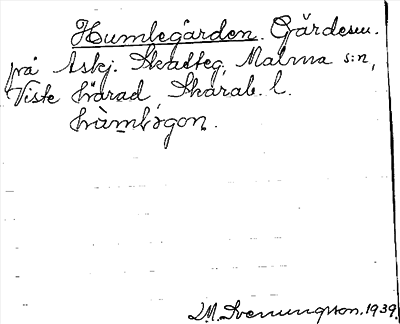 Humlegården. Gärdesn.
på Askj. Skatteg, Malma s:n,
Viste härad, Skarab. l.
hùmləgon.
L.M. Svenungsson. 1939.